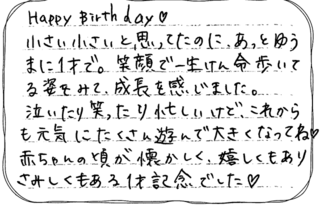 Happy Birthday♡
小さい小さいと思ってたのに、あっとゆう
まに1才で。笑顔で一生けん命歩いて
る姿をみて、成長を感じました。
泣いたり笑ったり忙しいけど、これから
も元気にたくさん遊んで大きくなってね♡
赤ちゃんの頃が懐かしく、嬉しくもあり
さみしくもある1才記念でした♡